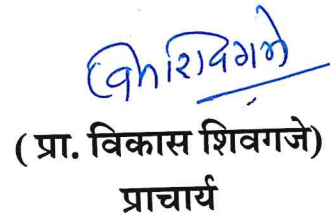 विशिवगजे
( प्रा. विकास शिवगजे)
प्राचार्य